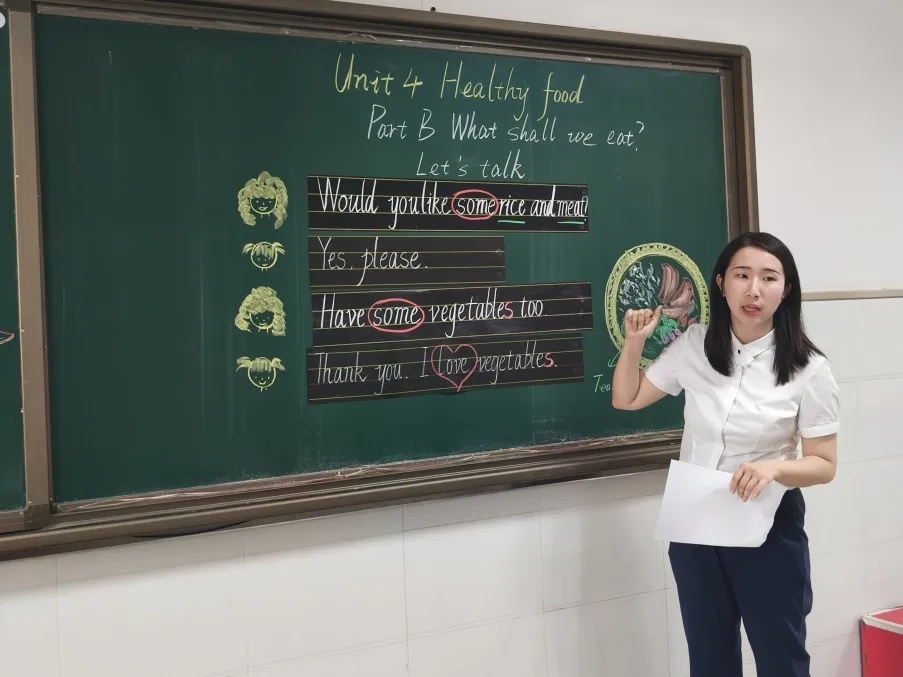 Unit 4 Healthy food
Part B What shall we eat?
Let's talk
Would you like some rice and meat?
Yes, please.
Have some vegetables too.
Thank you. I love vegetables.